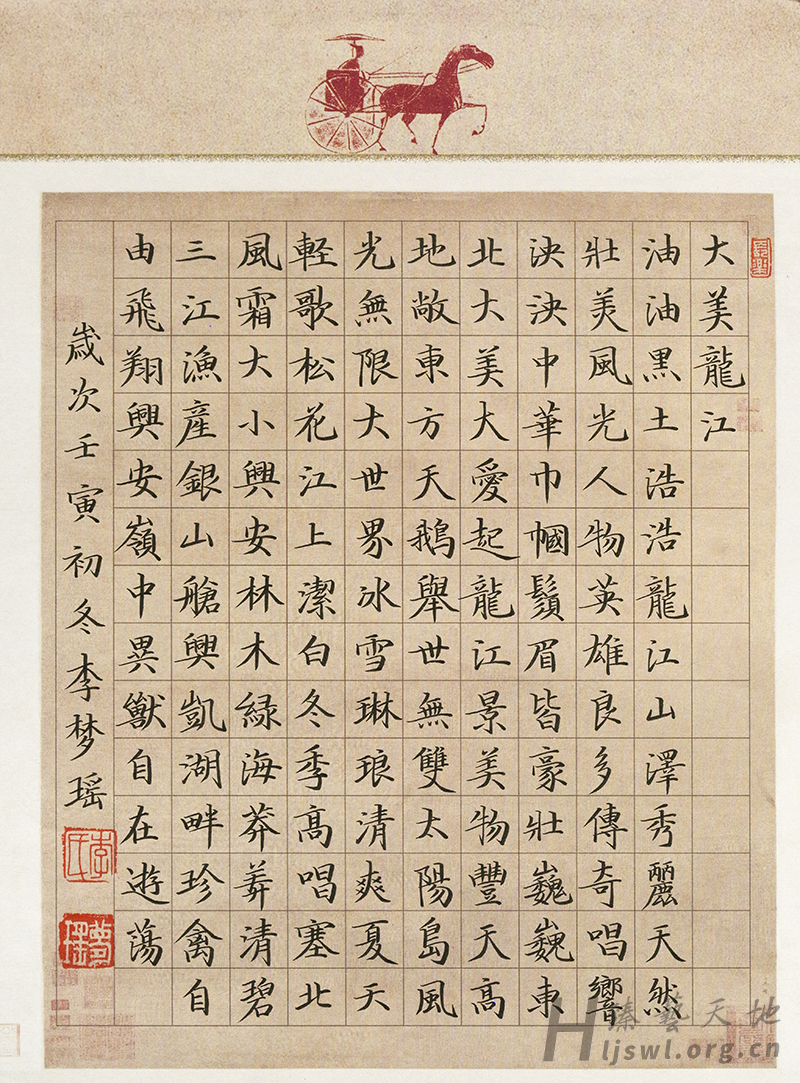 大美龍江
油油黑土浩浩龍江山澤秀麗天然
壯美風光人物英雄良多傳奇唱響
泱泱中華巾幗鬚眉皆豪壯巍巍東
北大美大愛起龍江景美物豐天高
地敞東方天鵝舉世無雙太陽島風
光無限大世界冰雪琳琅清爽夏天
軽歌松花江上潔白冬季高唱塞北
風霜大小興安林木緑海莽莽清碧
三江漁產銀山艙興凱湖畔珍禽自
由飛翔興安嶺中異獸自在遊蕩
歲次壬寅初冬李梦瑶
李氏
臻藝天地
Hljswl.org.cn